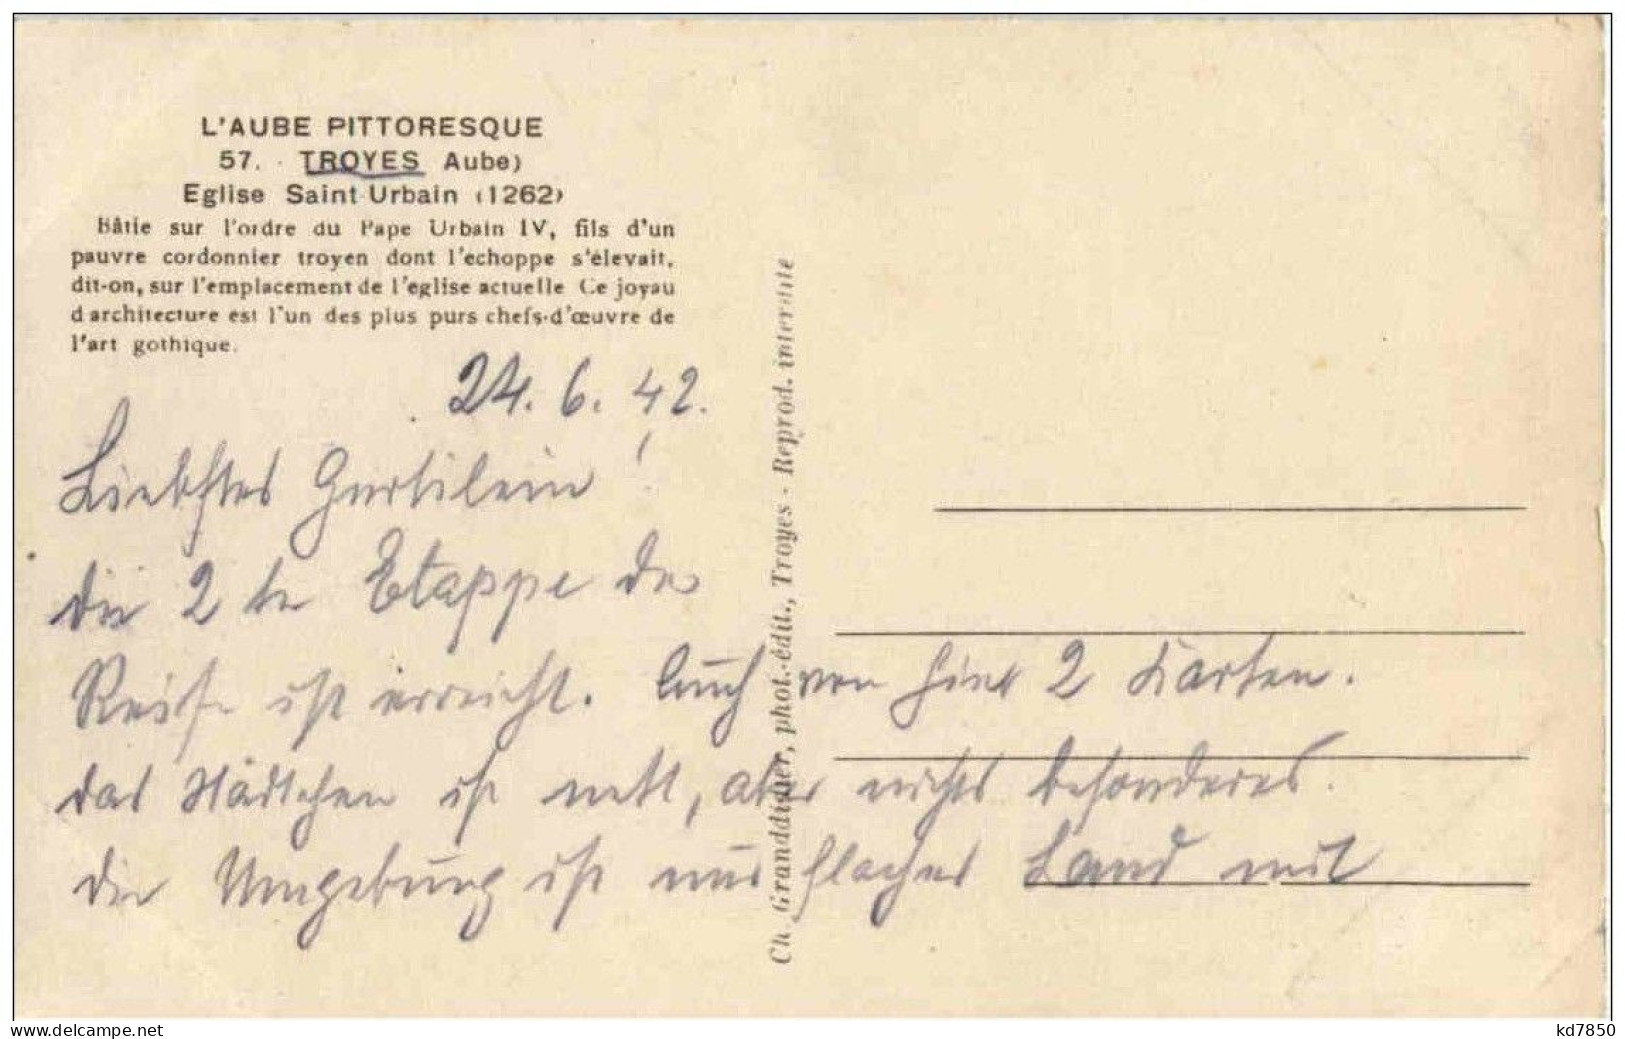 L'AUBE PITTORESQUE
57. · TROYES Aube)
Eglise Saint-Urbain (1262)
Bâtie sur l'ordre du Pape Urbain IV, fils d'un
pauvre cordonnier troyen dont l'echoppe s'élevait,
dit-on, sur l'emplacement de l'eglise actuelle Ce joyau
d architecture est l'un des plus purs chefs-d'œuvre de
l'art gothique.
24. 6. 42.
Liebstes Gertilein!
die 2 te Etappe der
Reise ist erreicht. Auch von hier 2 Karten.
das Städtchen ist nett, aber nichts besonderes.
die Umgebung ist nur flaches Land mit
Ch. Granddidier, phot.-édit., Troyes - Reprod. interdite
www.delcampe.net
kd7850